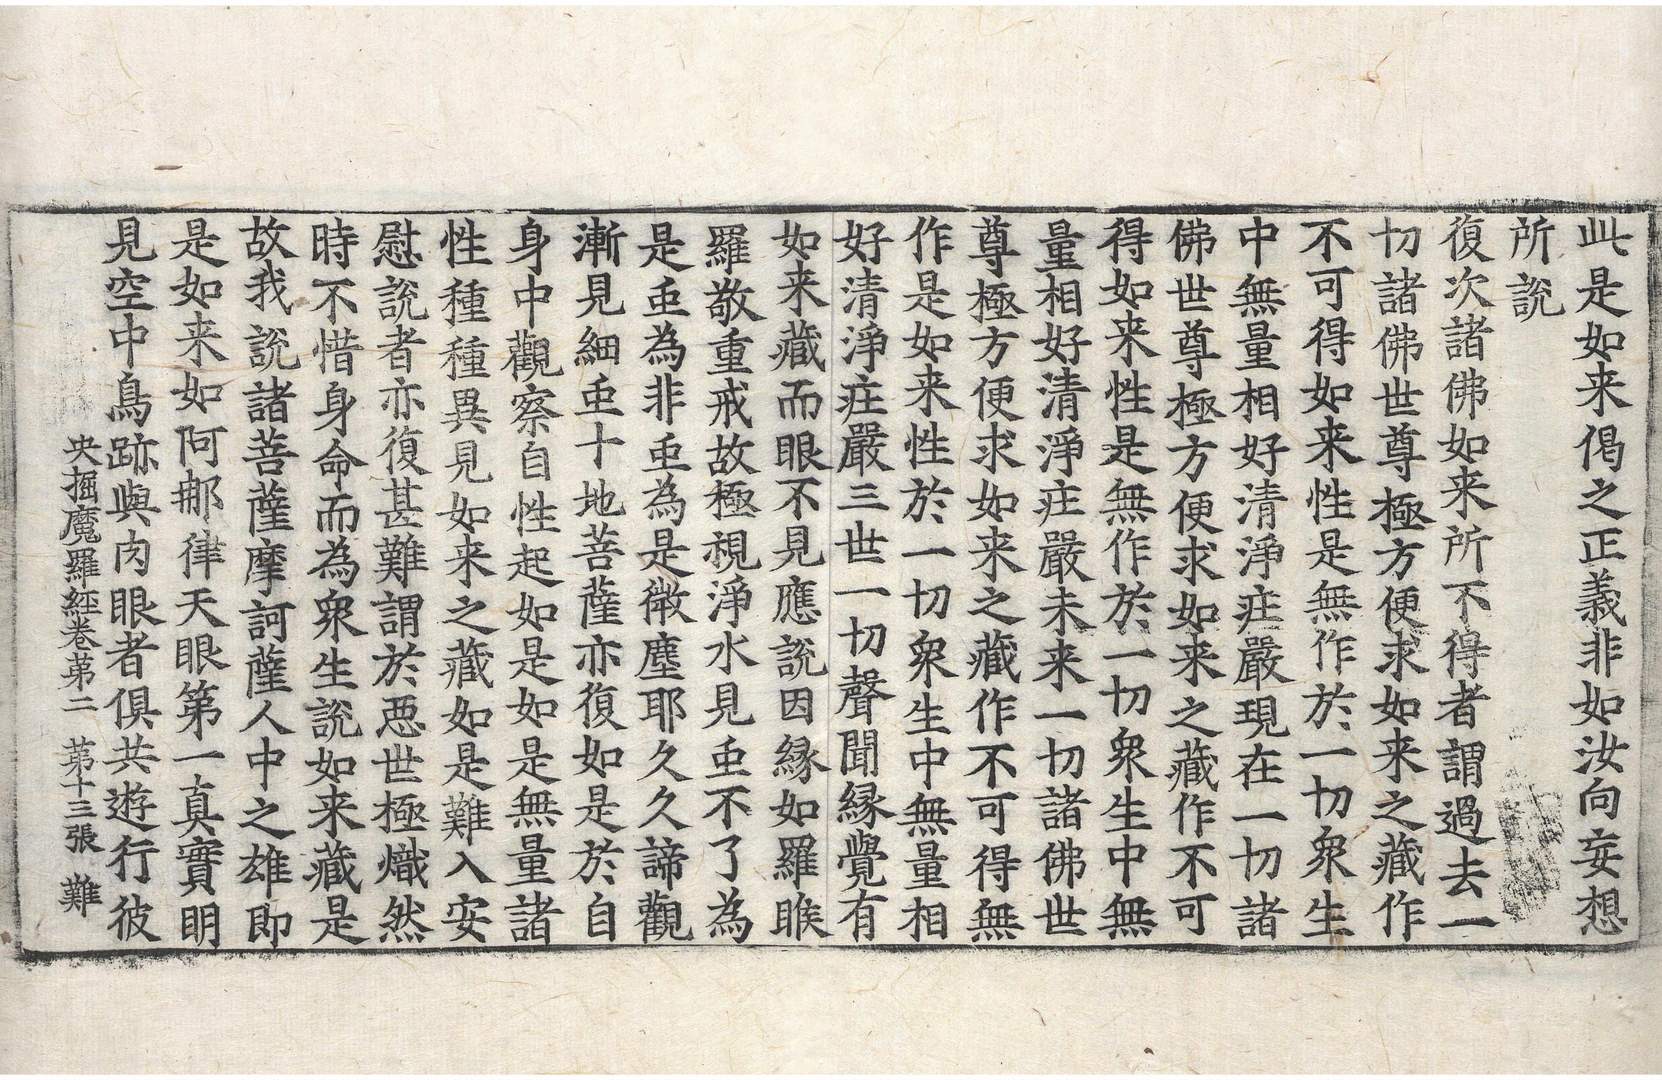 此是如来偈之正義非如汝向妄想
所說
復次諸佛如来所不得者謂過去一
切諸佛世尊極方便求如来之藏作
不可得如来性是無作於一切衆生
中無量相好清淨㽵嚴現在一切諸
佛世尊極方便求如来之藏作不可
得如来性是無作於一切衆生中無
量相好清淨㽵嚴未来一切諸佛世
尊極方便求如来之藏作不可得無
作是如来性於一切衆生中無量相
好清淨㽵嚴三世一切聲聞縁覺有
如来藏而眼不見應說因縁如羅睺
羅敬重戒故極視淨水見䖝不了為
是䖝為非䖝為是微塵耶久久諦觀
漸見細䖝十地菩薩亦復如是於自
身中觀察自性起如是如是無量諸
性種種異見如来之藏如是難入安
慰說者亦復甚難謂於惡世極熾然
時不惜身命而為衆生說如来藏是
故我說諸菩薩摩訶薩人中之雄即
是如来如阿那律天眼第一真實明
見空中鳥跡與肉眼者俱共遊行彼
央掘魔羅經卷第二　第十三張　難